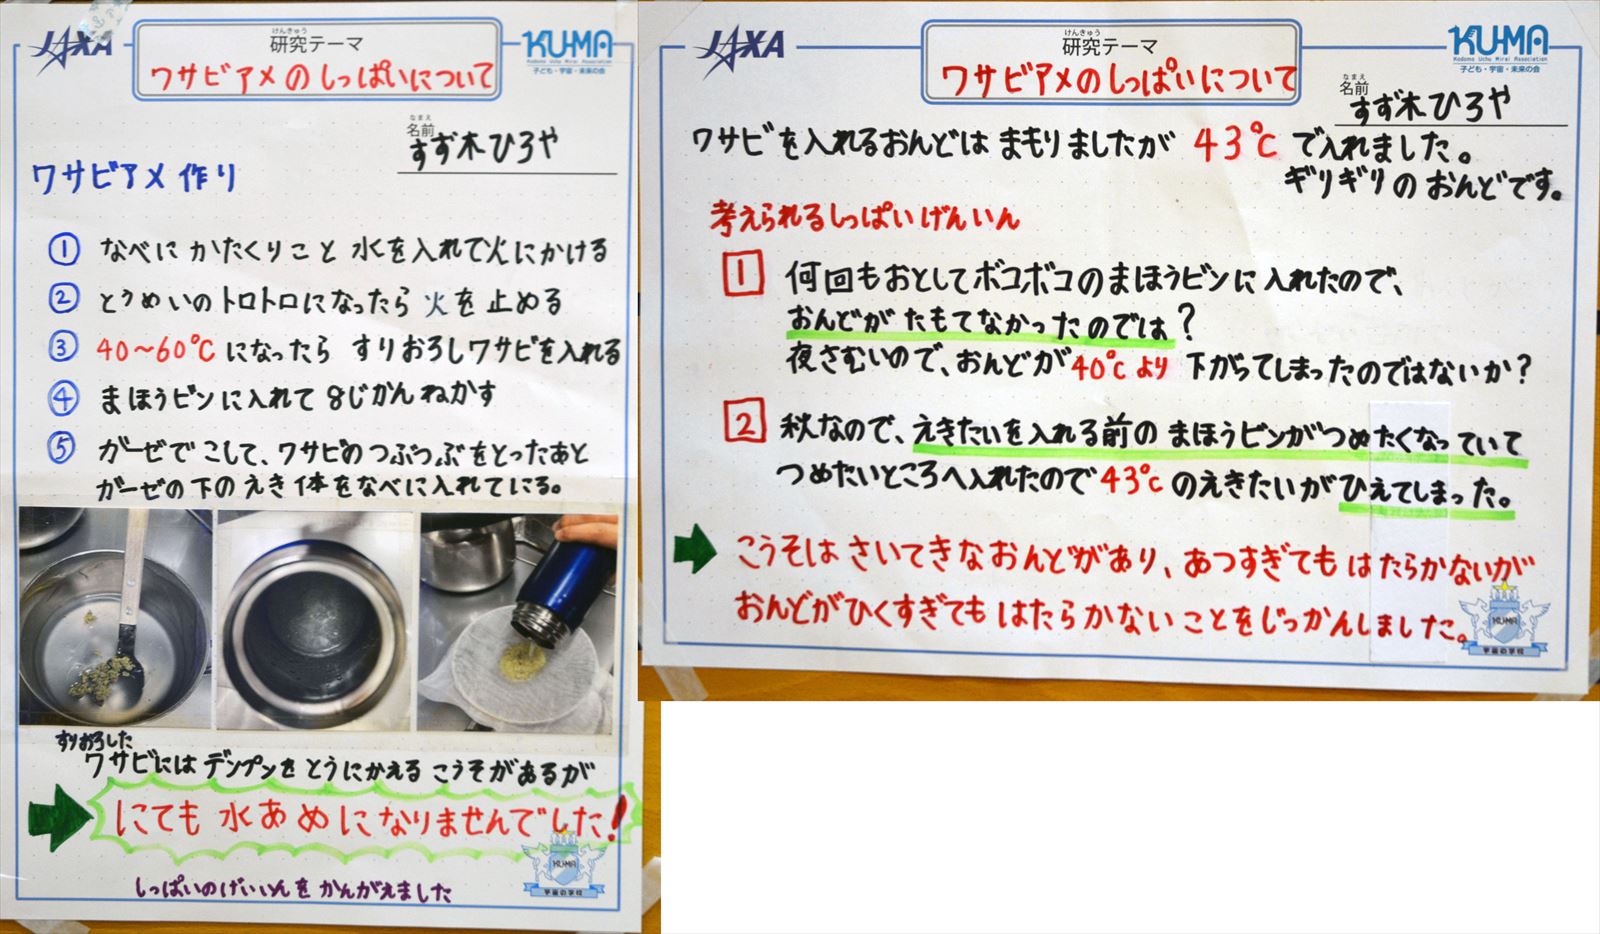 JAXA
けんきゅう
研究テーマ
ワサビアメのしっぱいについて
KUMA
子ども・宇宙・未来の会
なまえ
名前
すず木ひろや
ワサビアメ作り
① なべに かたくりこと 水を入れて火にかける
② とうめいのトロトロになったら 火を止める
③ 40〜60℃になったら すりおろしワサビを入れる
④ まほうビンに入れて 8じかんねかす
⑤ ガーゼでこして、ワサビのつぶつぶをとったあと
ガーゼの下のえき体をなべに入れてにる。
すりおろした
ワサビにはデンプンをとうにかえるこうそがあるが
にても水あめになりませんでした!
KUMA
宇宙の学校
しっぱいのげいいんをかんがえました
JAXA
けんきゅう
研究テーマ
ワサビアメのしっぱいについて
KUMA
Kodomo Uchu Mirai Association
子ども・宇宙・未来の会
なまえ
名前
すず木ひろや
ワサビを入れるおんどは まもりましたが 43℃で入れました。
ギリギリのおんどです。
考えられるしっぱいげんいん
1 何回もおとしてボコボコのまほうビンに入れたので、
おんどがたもてなかったのでは?
夜さむいので、おんどが40℃より下がってしまったのではないか?
2 秋なので、えきたいを入れる前のまほうビンがつめたくなっていて
つめたいところへ入れたので43℃のえきたいがひえてしまった。
こうそはさいてきなおんどがあり、あつすぎてもはたらかないが
おんどがひくすぎてもはたらかないことをじっかんしました。
KUMA
宇宙の学校